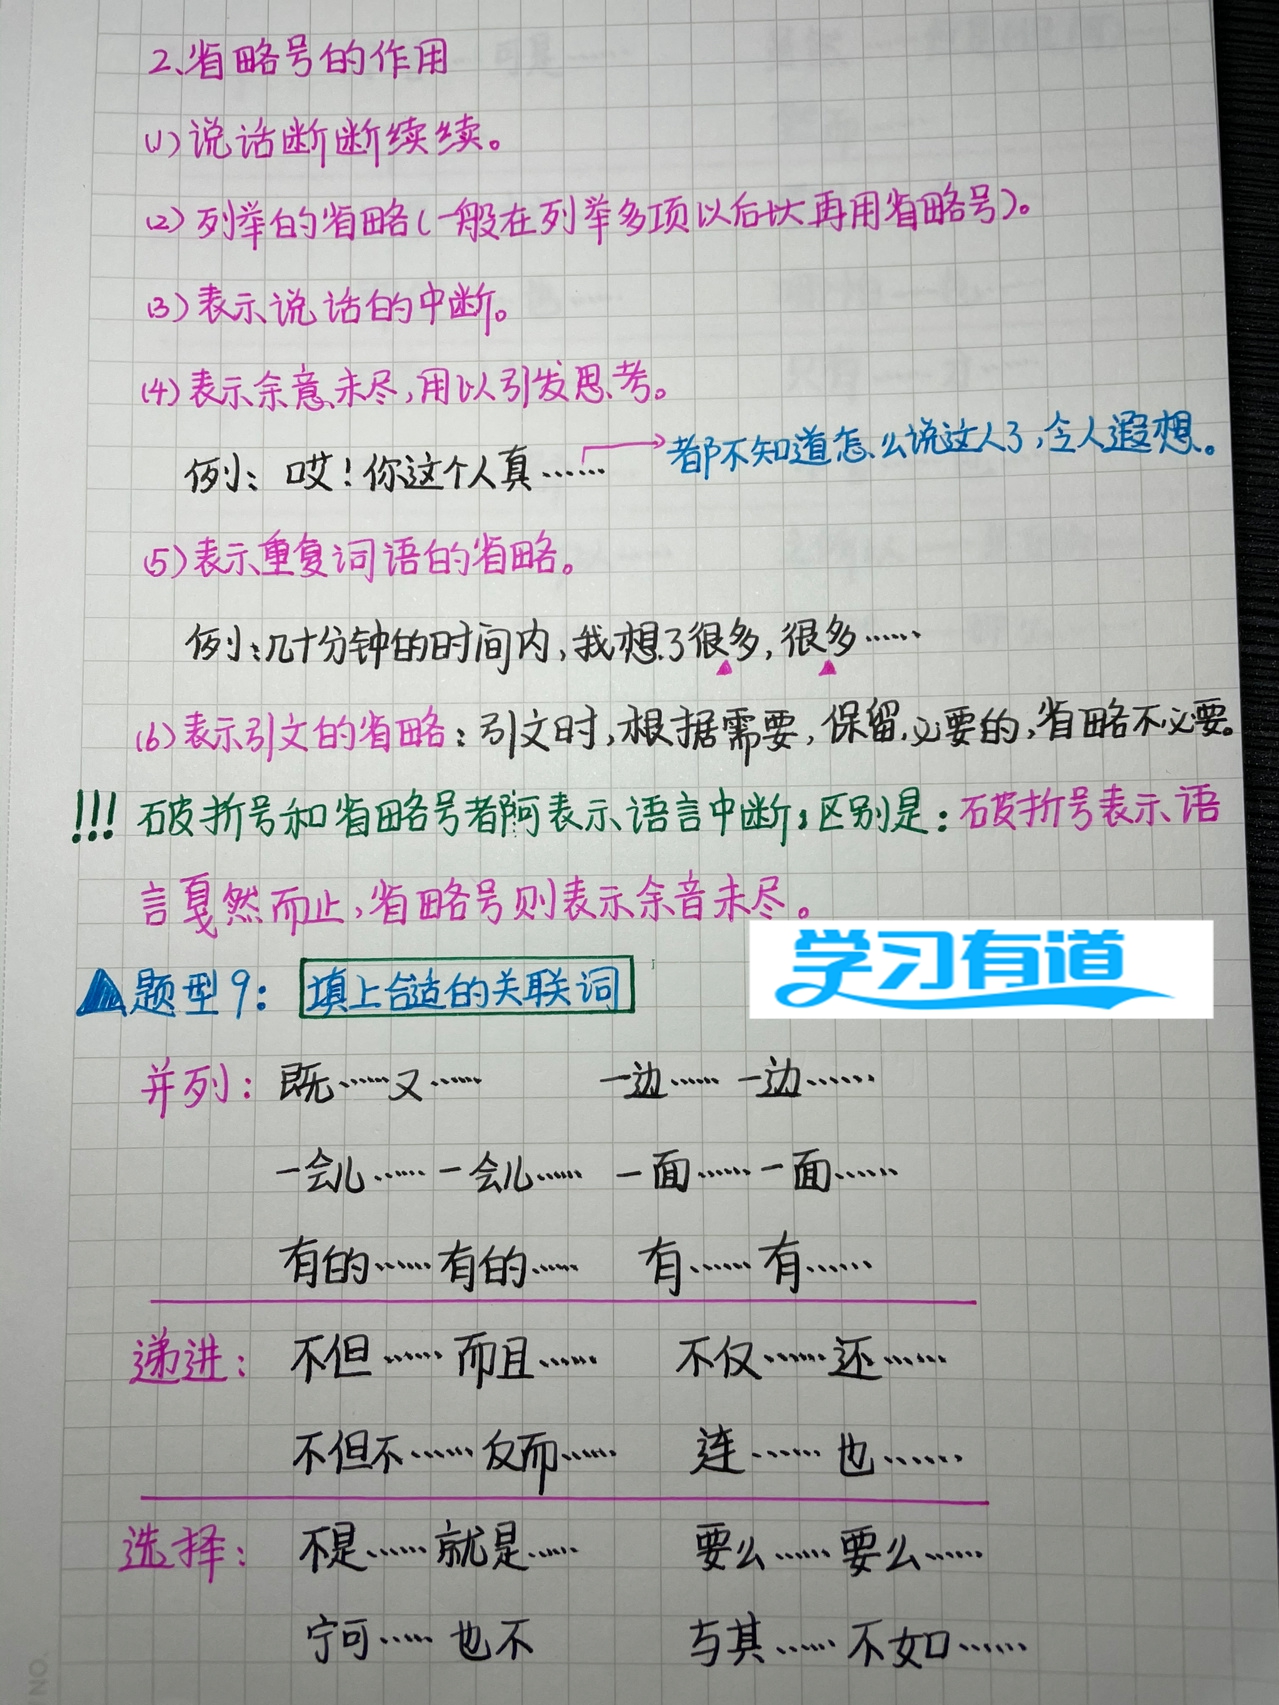 2、省略号的作用
(1)说话断断续续。
(2)列举的省略(一般在列举多项以后才再用省略号)。
(3)表示说话的中断。
(4)表示余意未尽,用以引发思考。
例:哎!你这个人真…… 都不知道怎么说这人了,令人遐想。
(5)表示重复词语的省略。
例:几十分钟的时间内,我想了很多,很多……
(6)表示引文的省略:引文时,根据需要,保留必要的,省略不必要。
!!!破折号和省略号都可表示语言中断,区别是:破折号表示语
言戛然而止,省略号则表示余音未尽。
学习有道
题型9:填上合适的关联词
并列:既……又…… 一边……一边……
一会儿……一会儿…… 一面……一面……
有的……有的…… 有……有……
递进:不但……而且…… 不仅……还……
不但不……反而…… 连……也……
选择:不是……就是…… 要么……要么……
宁可……也不 与其……不如……
NO.